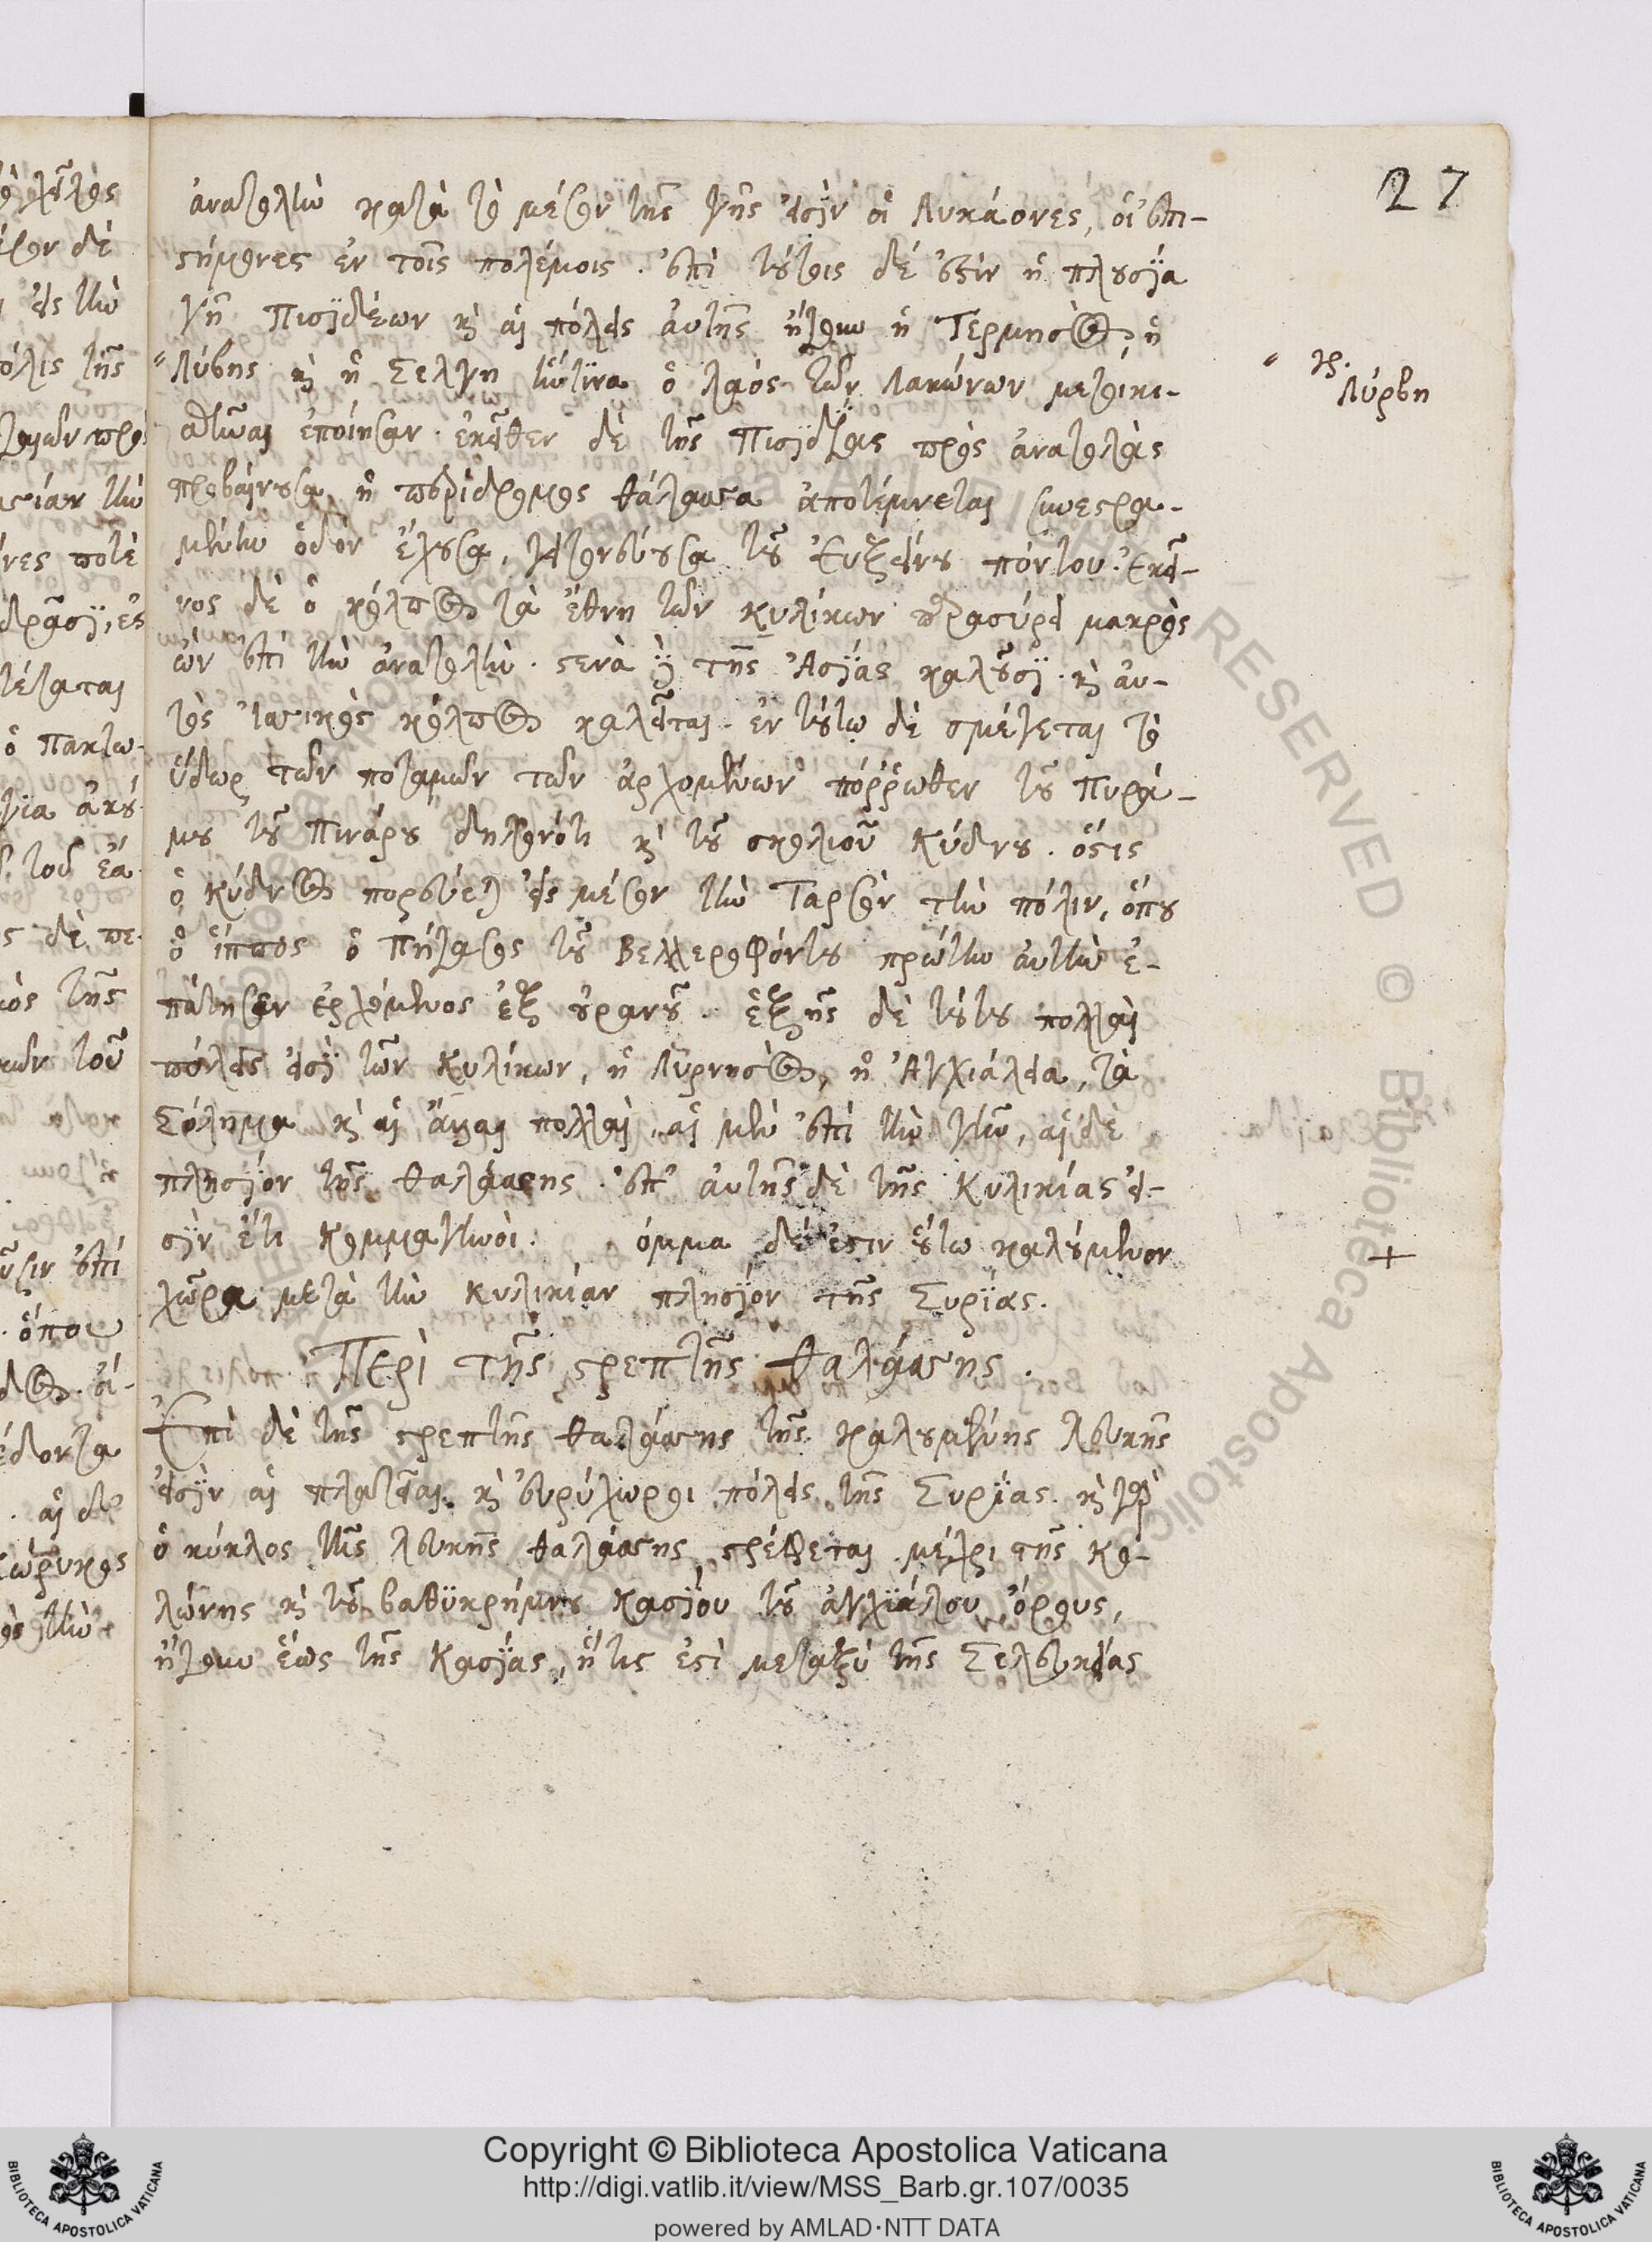 27
ἀνατολὴν κατὰ τὸ μέσον τῆς γῆς εἰσὶν οἱ Λυκάονες, οἱ ἐπι-
στήμονες ἐν τοῖς πολέμοις. ἐπὶ τούτοις δέ ἐστιν ἡ πλουσία
γῆ Πισιδέων κὶ αἱ πόλεις αὐτῆς ἤγουν ἡ Τερμησὸς, ἡ
Λύβης κὶ ἡ Σέλγη ἥντινα ὁ λαός τῶν Λακώνων μετοικι-
κ. Λύρβη
ἐποίησαν. ἐκεῖθεν δὲ τῆς Πισιδείας πρὸς ἀνατολὰς
προβαίνουσα ἡ περίδρομος θάλασσα ἀποτέμνεται συνεστρα-
μένην ὁδὸν ἔχουσα, γειτονεύουσα τοῦ Εὐξείνου πόντου. ἐκεῖ-
νος δὲ ὁ κόλπος τὰ ἔθνη τῶν Κυλίκων περιασύρει μακρὸς
ὢν ἐπὶ τὴν ἀνατολὴν. στενὰ δὲ τῆς Ἀσίας καλοῦσι. κὶ αὐ-
τὸς Ἰσσικὸς κόλπος καλεῖται. ἐν τούτῳ δὲ σμίγεται τὸ
ὕδωρ τῶν ποταμῶν τῶν ἀρχομένων πόρρωθεν τοῦ Πυρά-
μου τοῦ Πινάρου δηλονότι κὶ τοῦ σκολιοῦ Κύδνου. ὅστις
ὁ Κύδνος πορεύεται εἰς μέσον τὴν Ταρσὸν τὴν πόλιν, ὅπου
ὁ ἵππος ὁ Πήγασος τοῦ Βελλεροφόντου πρώτην αὐτὴν ἐ-
πάτησεν ἐρχόμενος ἐξ οὐρανοῦ. ἑξῆς δὲ τούτου πολλαὶ
πόλεις εἰσὶ τῶν Κυλίκων, ἡ Λυρνησὸς, ἡ Ἀγχιάλεια, τὰ
Σόλημα κὶ αἱ ἄλλαι πολλαὶ, αἱ μὲν ἐπὶ τὴν γῆν, αἱ δὲ
πλησίον τῆς θαλάσσης. ἐπ' αὐτῆς δὲ τῆς Κυλικίας εἰ-
σὶν ἔτι Κομμαγηνοὶ. όμμα δέ ἐστιν οὕτω καλούμενον
+
χώρα μετὰ τὴν Κυλικίαν πλησίον τῆς Συρίας.
Περὶ τῆς στρεπτῆς θαλάσσης.
Ἐπὶ δὲ τῆς στρεπτῆς θαλάσσης τῆς καλουμένης λευκῆς
εἰσὶν αἱ πλατεῖαι κὶ εὐρύχωροι πόλεις τῆς Συρίας. κὶ γὰρ
ὁ κύκλος τῆς λευκῆς θαλάσσης στρέφεται μέχρι τῆς κο-
λώνης κὶ τοῦ βαθυκρήμνου Κασίου τοῦ ἀγχιάλου ὄρους,
ἤγουν ἕως τῆς Κασίας, ἥτις ἐστὶ μεταξὺ τῆς Σελευκείας
Copyright © Biblioteca Apostolica Vaticana
http://digi.vatlib.it/view/MSS_Barb.gr.107/0035
powered by AMLAD·NTT DATA